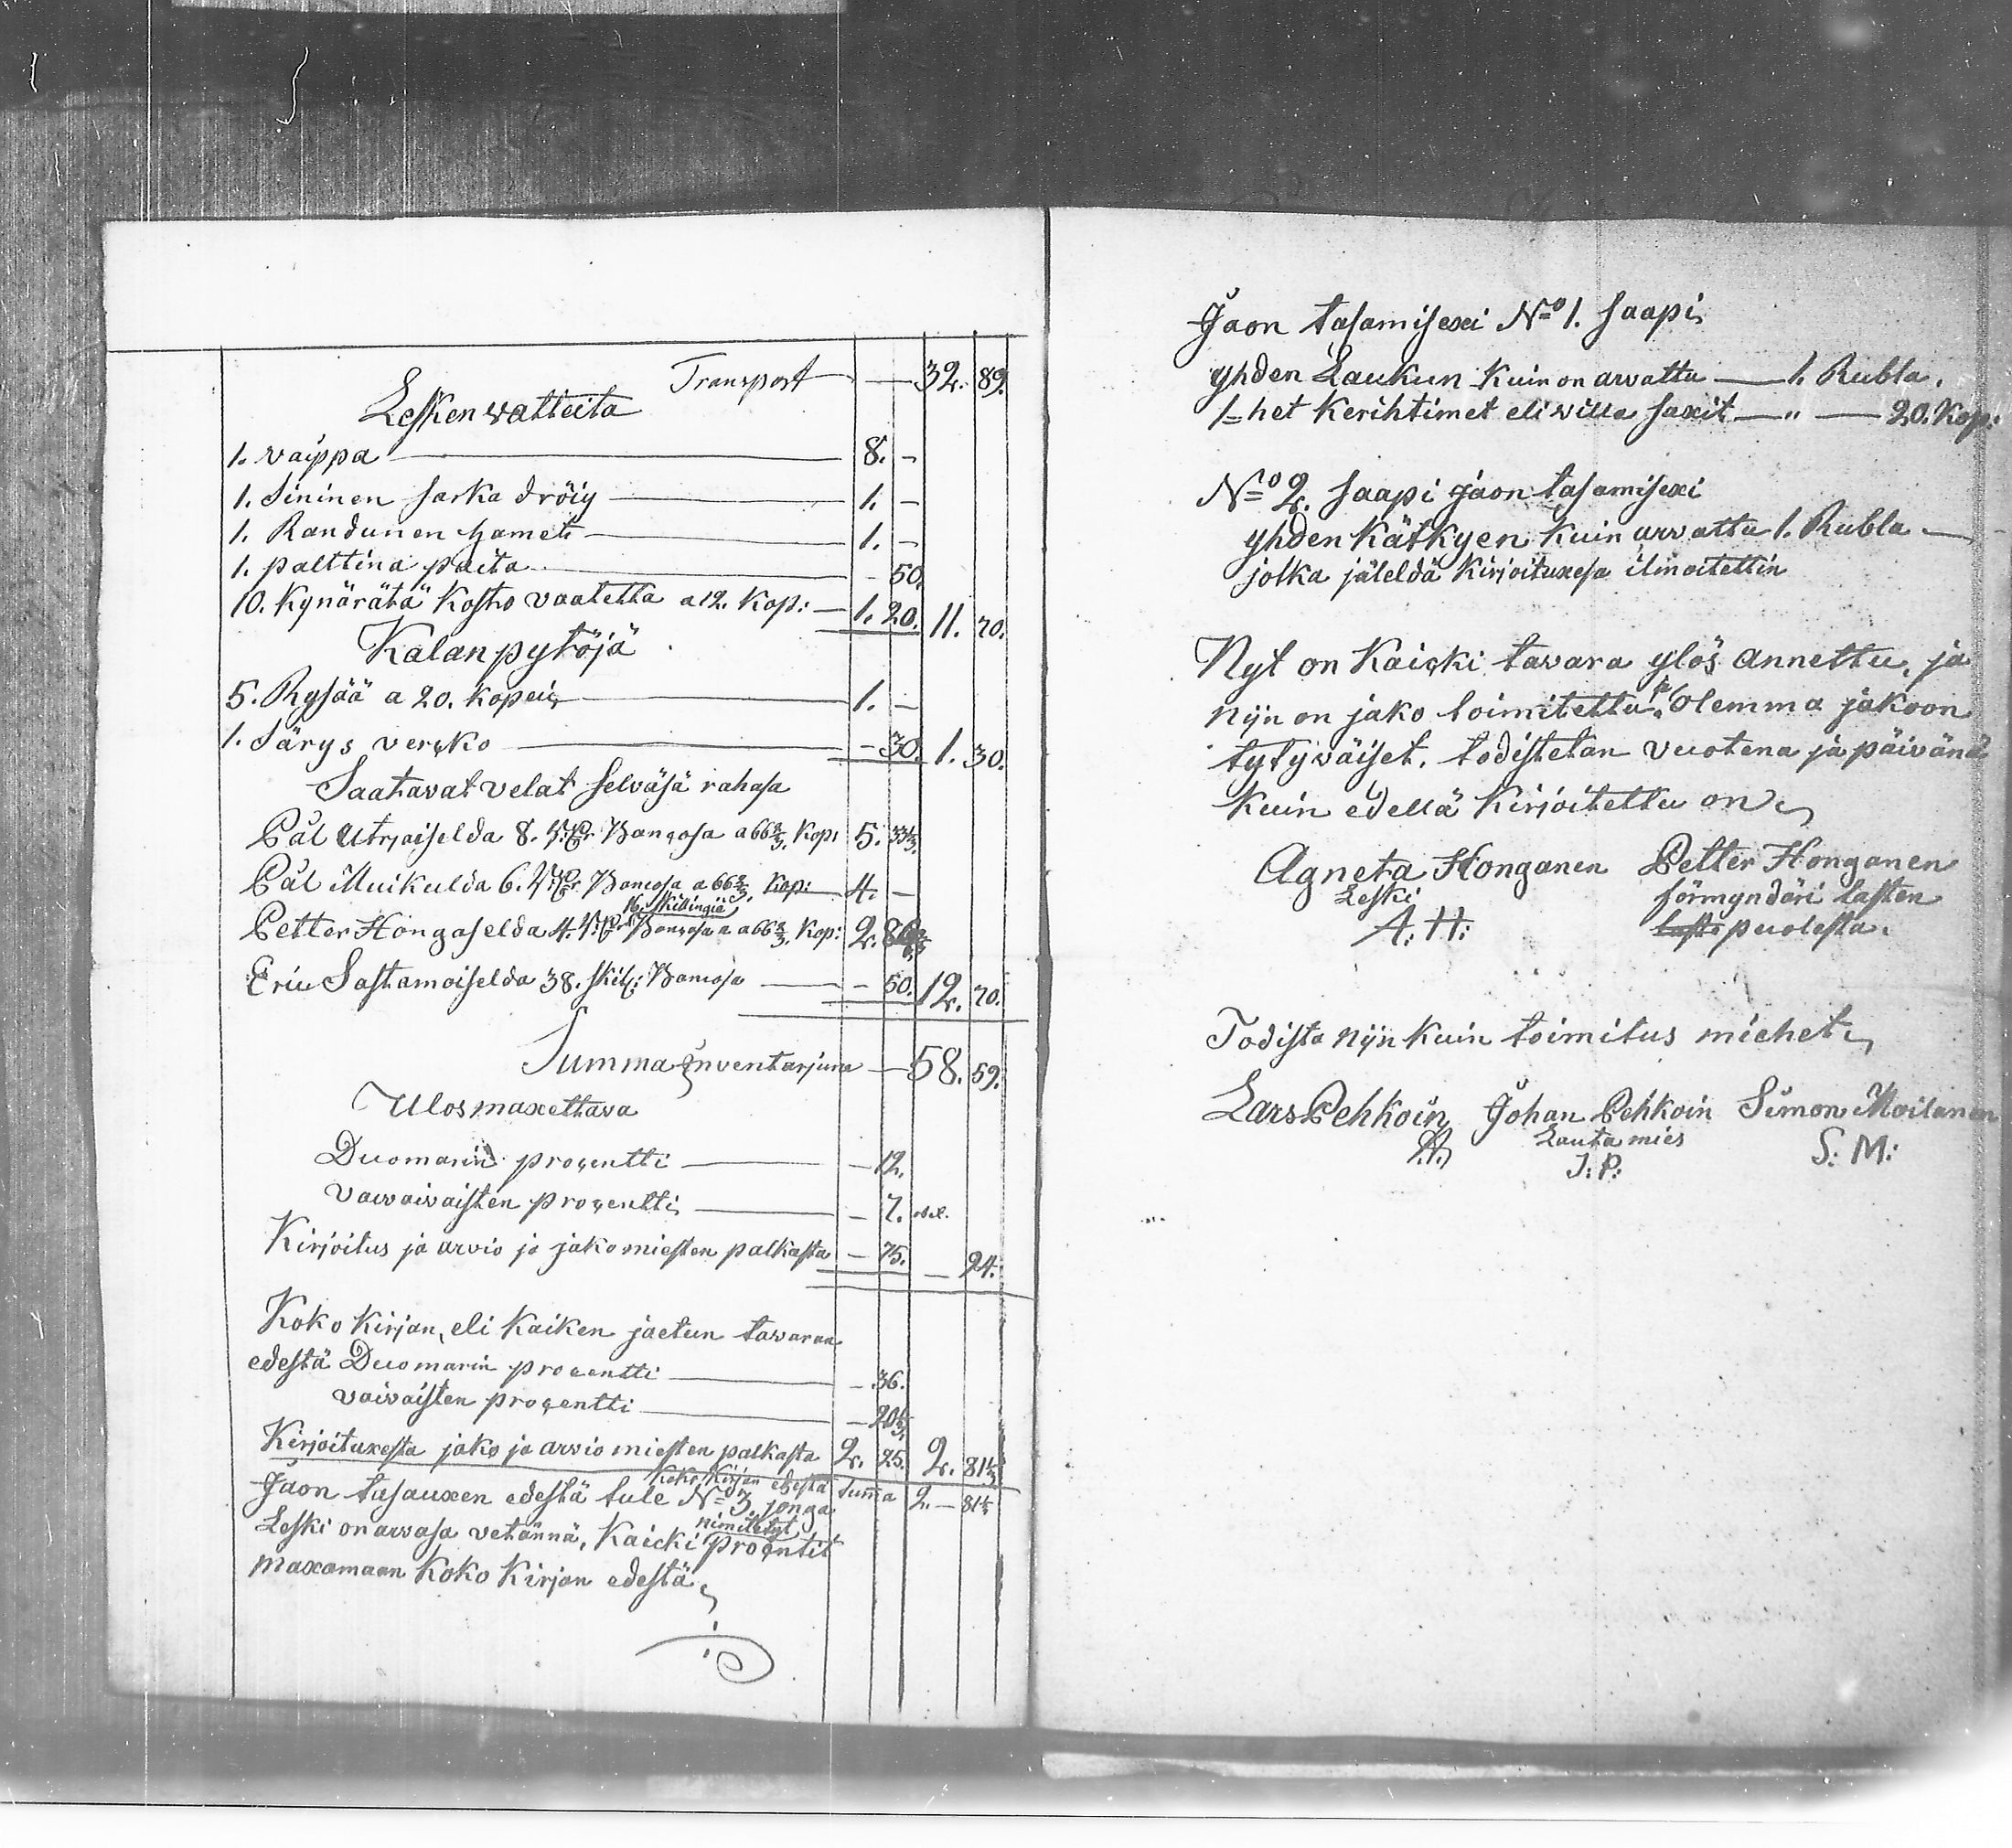 Transport — 32. 89.
Lesken vatteita
1. vaippa — 8. –
1. Sininen sarka dröiy — 1. –
1. Randunen hamet — 1. –
1. palttina paita — – 50.
10. kynärätä Kosto vaatetta a 12. Kop: — 1. 20. 11. 70.
Kalan pytöjä
5. Rysää a 20. kopeic — 1. –
1. Särys vercko — – 30. 1. 30.
Saatavat velat selväsä rahasa
Pål Utriaiselda 8. Bancosa a 66 2/3. Kop: 5. 33 1/3.
Pål Muikulda 6. Bancosa a 66 2/3. Kop: — 4. –
16. skillingiä
Petter Hongaselda 4. Bancosa a 66 2/3. Kop: 2. 86 2/3.
Eric Sastamoiselda 38. skil: Bancosa — – 50. 12. 70.
Summa Inventarjume — 58. 59.
Ulosmaxettava
Duomarin procentti — – 12.
vaivaisten procentti — – 7.
Kirjoitus ja arvio ja jakomiesten palkasta – 75. – 94.
Koko Kirjan, eli Kaiken jaetun tavaran
edestä Duomarin procentti — – 36.
vaivaisten procentti — – 20 1/2.
Kirjoituxesta jako ja arvio miesten palkasta 2. 25. 2. 81 1/2
Koko Kirjan edestä Summa 2. – 81 1/2
Jaon tasauxen edestä tule No 3. jonga
Leski on arvasa vetännä, Kaicki nimitetyt procentit
maxamaan Koko Kirjan edestä
Jaon tasamisexi No 1. saapi
yhden Laukun Kuin on arvattu — 1. Rubla.
1-het Kerihtimet eli villa saxit — " — 20. Kop:
No 2. saapi jaon tasamisexi
yhden Kätkyen Kuin arvattu 1. Rubla —
jolka jäleldä Kirjoituxesa ilmoitettin
Nyt on Kaicki tavara ylös annettu, ja
nijn on jako toimitettu, ja Olemma jakoon
tytyväiset, todistetan vuotena ja päivänä
kuin edellä Kirjoitettu on
Agneta Honganen Petter Honganen
Leski förmyndäri lasten
A: H: puolesta.
Todista nijn kuin toimitus miehet
Lars Pehkoin Johan Pehkoin Simon Moilanen
Lauta mies
J: P: S: M: